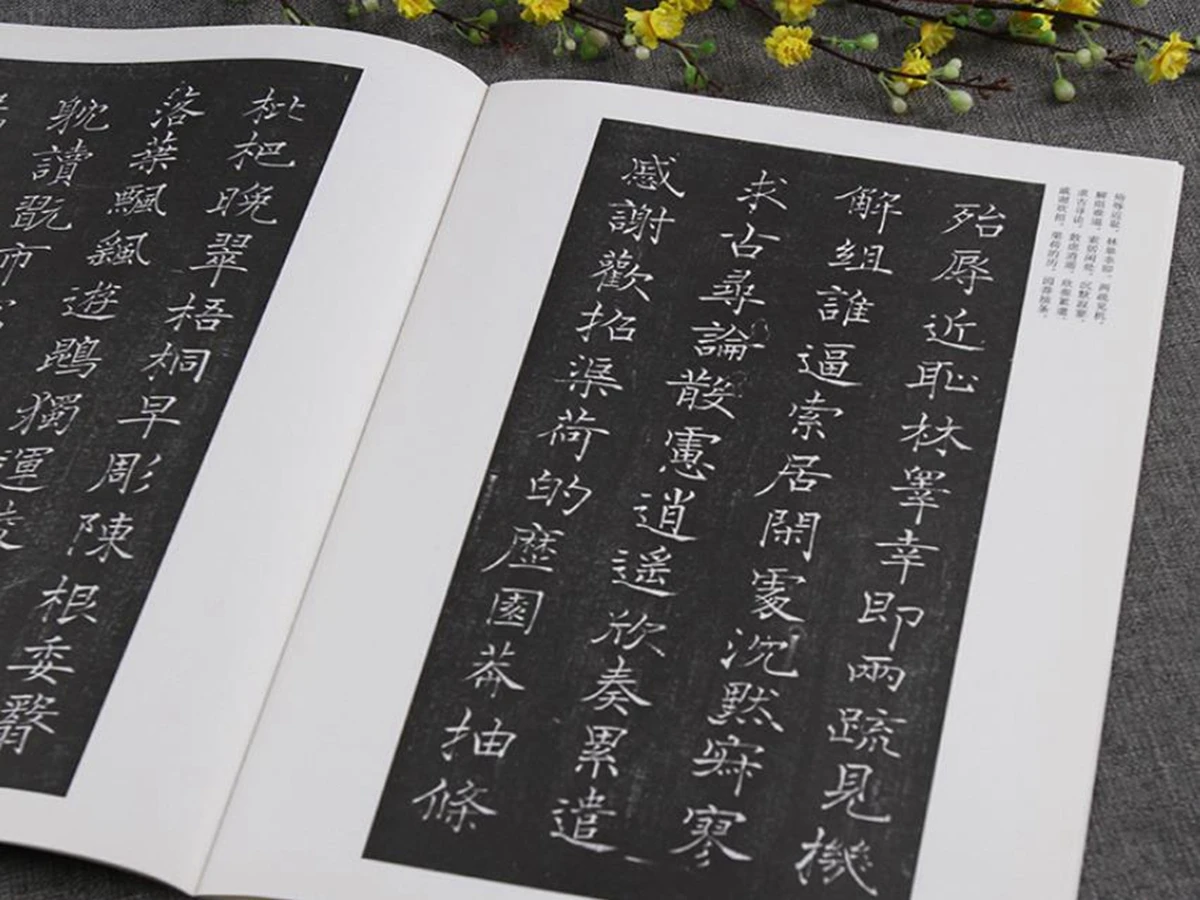 殆辱近耻，林皋幸即。两疏见机，
解组谁逼。索居闲处，沉默寂寥。
求古寻论，散虑逍遥。欣奏累遣，
戚谢欢招。渠荷的历，园莽抽条。
殆辱近恥林睾幸即兩疏見機
解組誰逼索居閑處沈默寂寥
求古尋論散慮逍遥欣奏累遣
慼謝歡招渠荷的歷園莽抽條
枇杷晚翠梧桐早彫陳根委翳
落葉飄颻遊鵾獨運
耽讀翫市